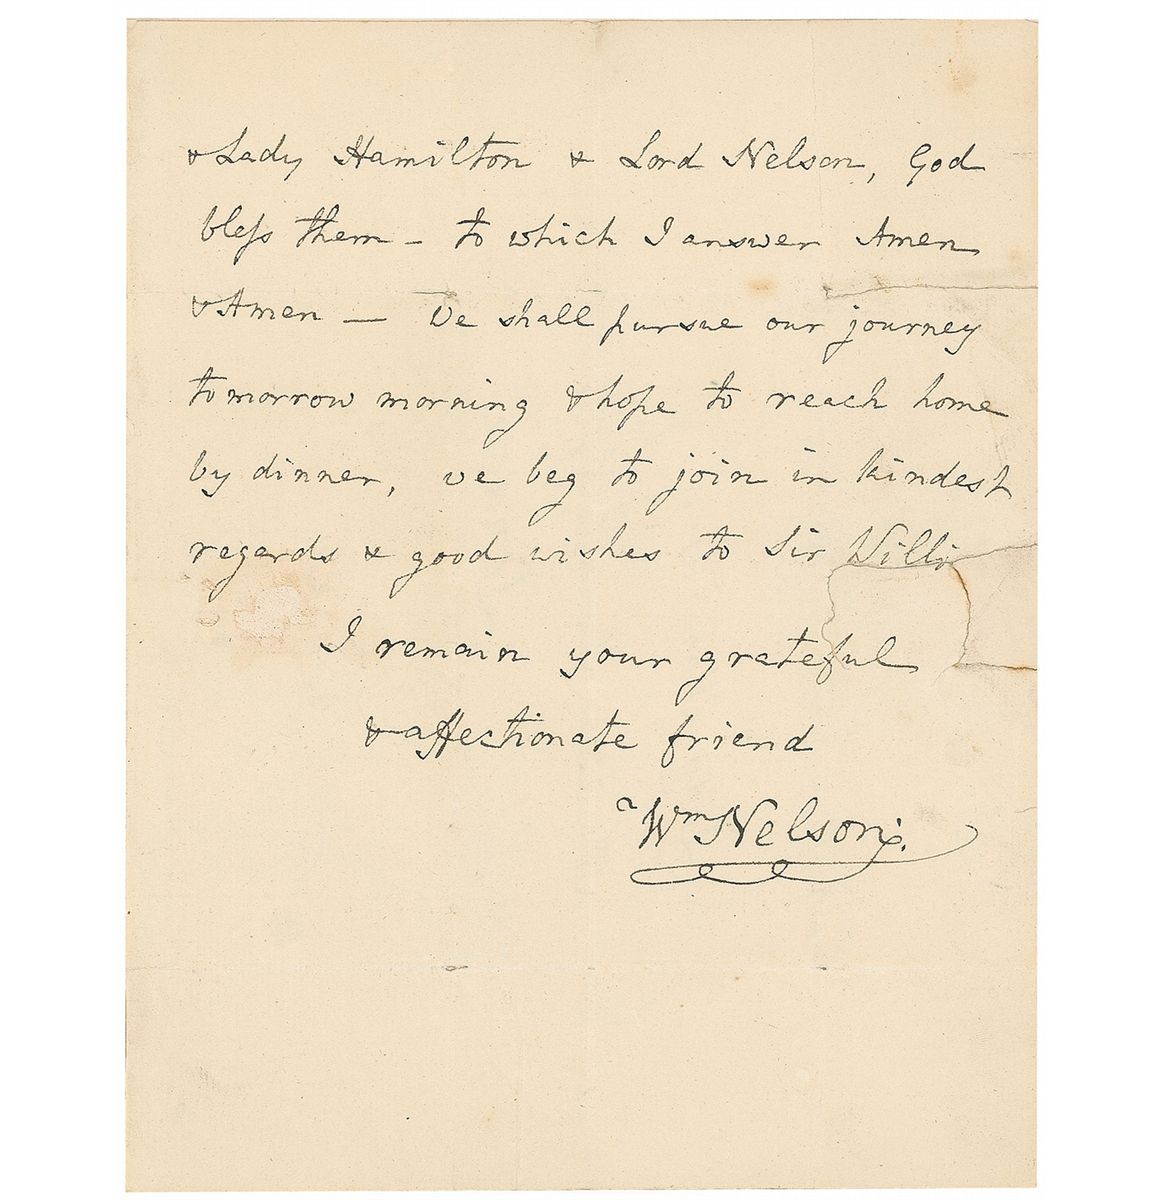 & Lady Hamilton & Lord Nelson, God
bleſs them – to which I answer Amen
& Amen — We shall pursue our journey
tomorrow morning & hope to reach home
by dinner, we beg to join in kindest
regards & good wishes to Sir Willm
I remain your grateful
& affectionate friend
Wm Nelson.